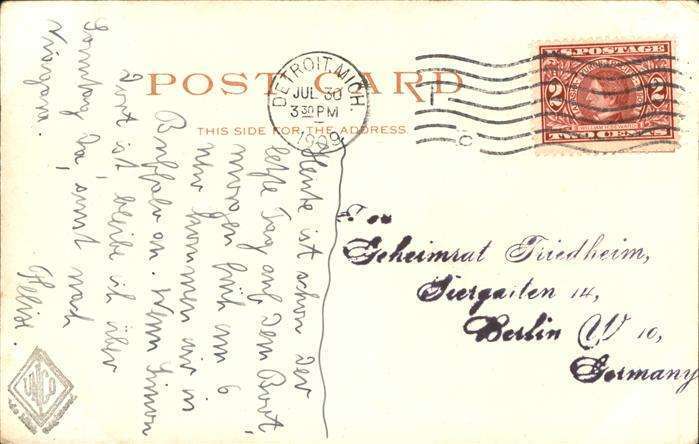 POST CARD
THIS SIDE FOR THE ADDRESS
DETROIT, MICH.
JUL 30
3 30 PM
1909
U.S. POSTAGE
2 2
TWO CENTS
Heute ist schon der
letzte Tag auf dem Boot
morgen früh um 6
Uhr kommen wir in
Buffalo an. Wenn Simon
dort ist bleibe ich über
Sonntag da, sonst nach
Niagara.
Geheimrat Friedheim,
Tiergarten 14,
Berlin W 10,
Germany